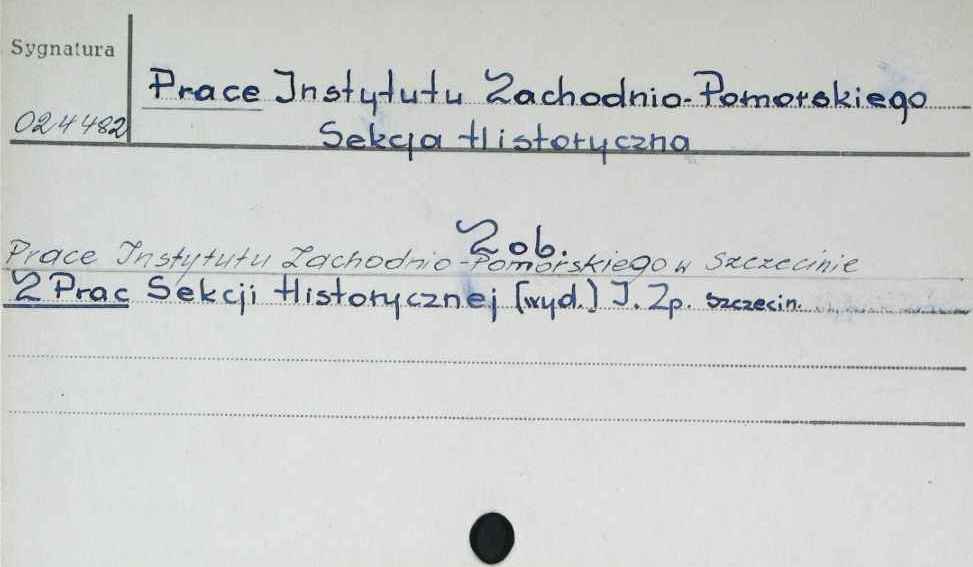 Sygnatura
Prace Instytutu Zachodnio-Pomorskiego
024482
Sekcja Historyczna
Zob.
Prace Instytutu Zachodnio-Pomorskiego w Szczecinie
Z Prac Sekcji Historycznej [wyd.] I. Zp. Szczecin.